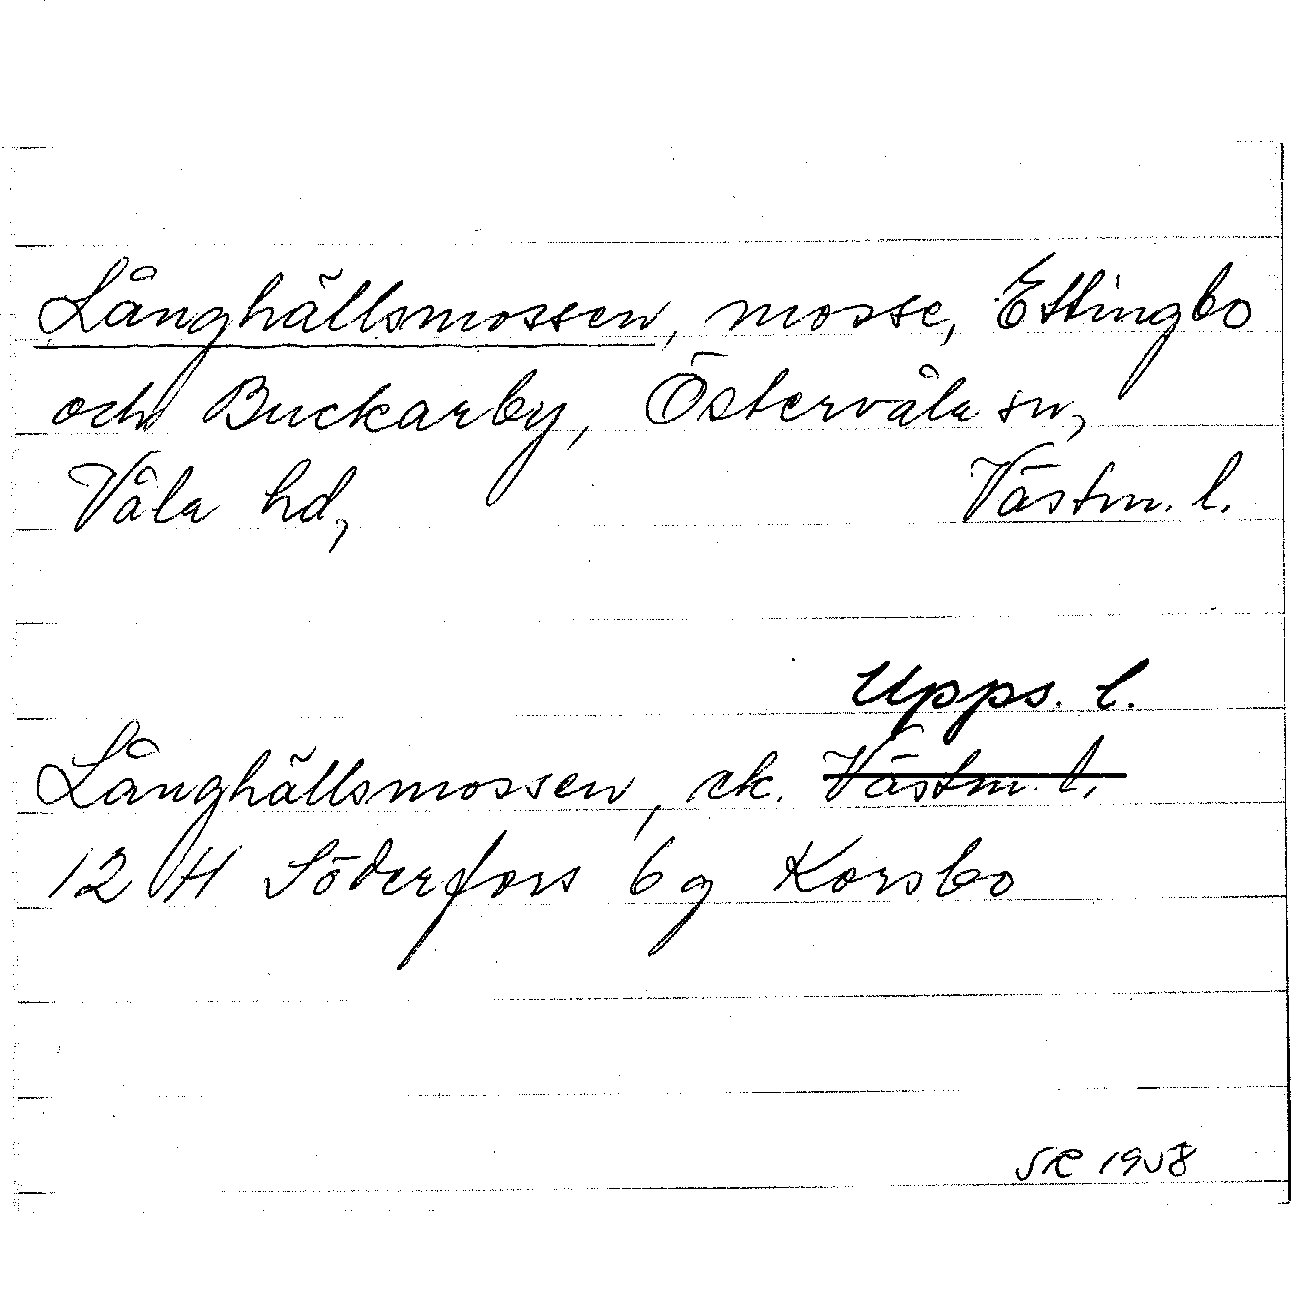 Långhällsmossen, mosse, Ettingbo
och Buckarby, Östervåla sn,
Våla hd, Västm. l.
Upps. l.
Långhällsmossen, ek. Västm. l.
12 H Söderfors 6 g Korsbo
SR 1958